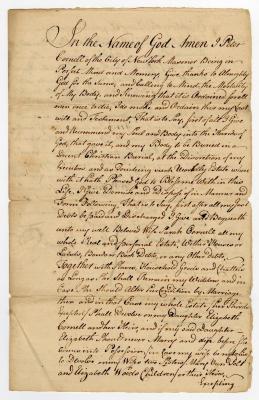 In the Name of God Amen I Peter
Cornell of the City of New York Marriner Being in
Perfect Mind and Memory, Give thanks to Almighty
God for the Same, and Calling to Mind, the Mortality
of My Body, and Knowing that it is Ordained for all
men once to die, Do make and Ordain this my Last
will and Testament, That is to Say, first of all I Give
and Recommend my Soul and Body into the Hands of
God, that gave it, and my Body to be Buried in a
Decent Christian Burial, at the Discretion of my
Executors and as touching such Worldly Estate where
with it hath Pleased God to Bless me With in this
Life. I Give Demise and Dispose of in Manner and
Form Following. That is to Say, first after all my Just
Debts be Paid and Discharged I Give and Bequeath
unto my well Beloved Wife Sarah Cornell all my
whole Real and Personal Estate, With Houses or
Lands, Bonds or Book Debts, or any Other Debts,
Together with Household Goods and Chattles
as Long as She Shall Remain my Widdow and in
Case She Should Alter her Condition by Marriage
then and in that Case my whole Estate
Shall Devolve on my Daughter Elizabeth
Cornell and her Heirs, and if my said Daughter
Elizabeth Should never Marry and die before She
Comes into Possession, in Case my wife is
to Devolve on my Wifes two Sisters
and Elizabeth Woods Children or their Heirs,
Excepting